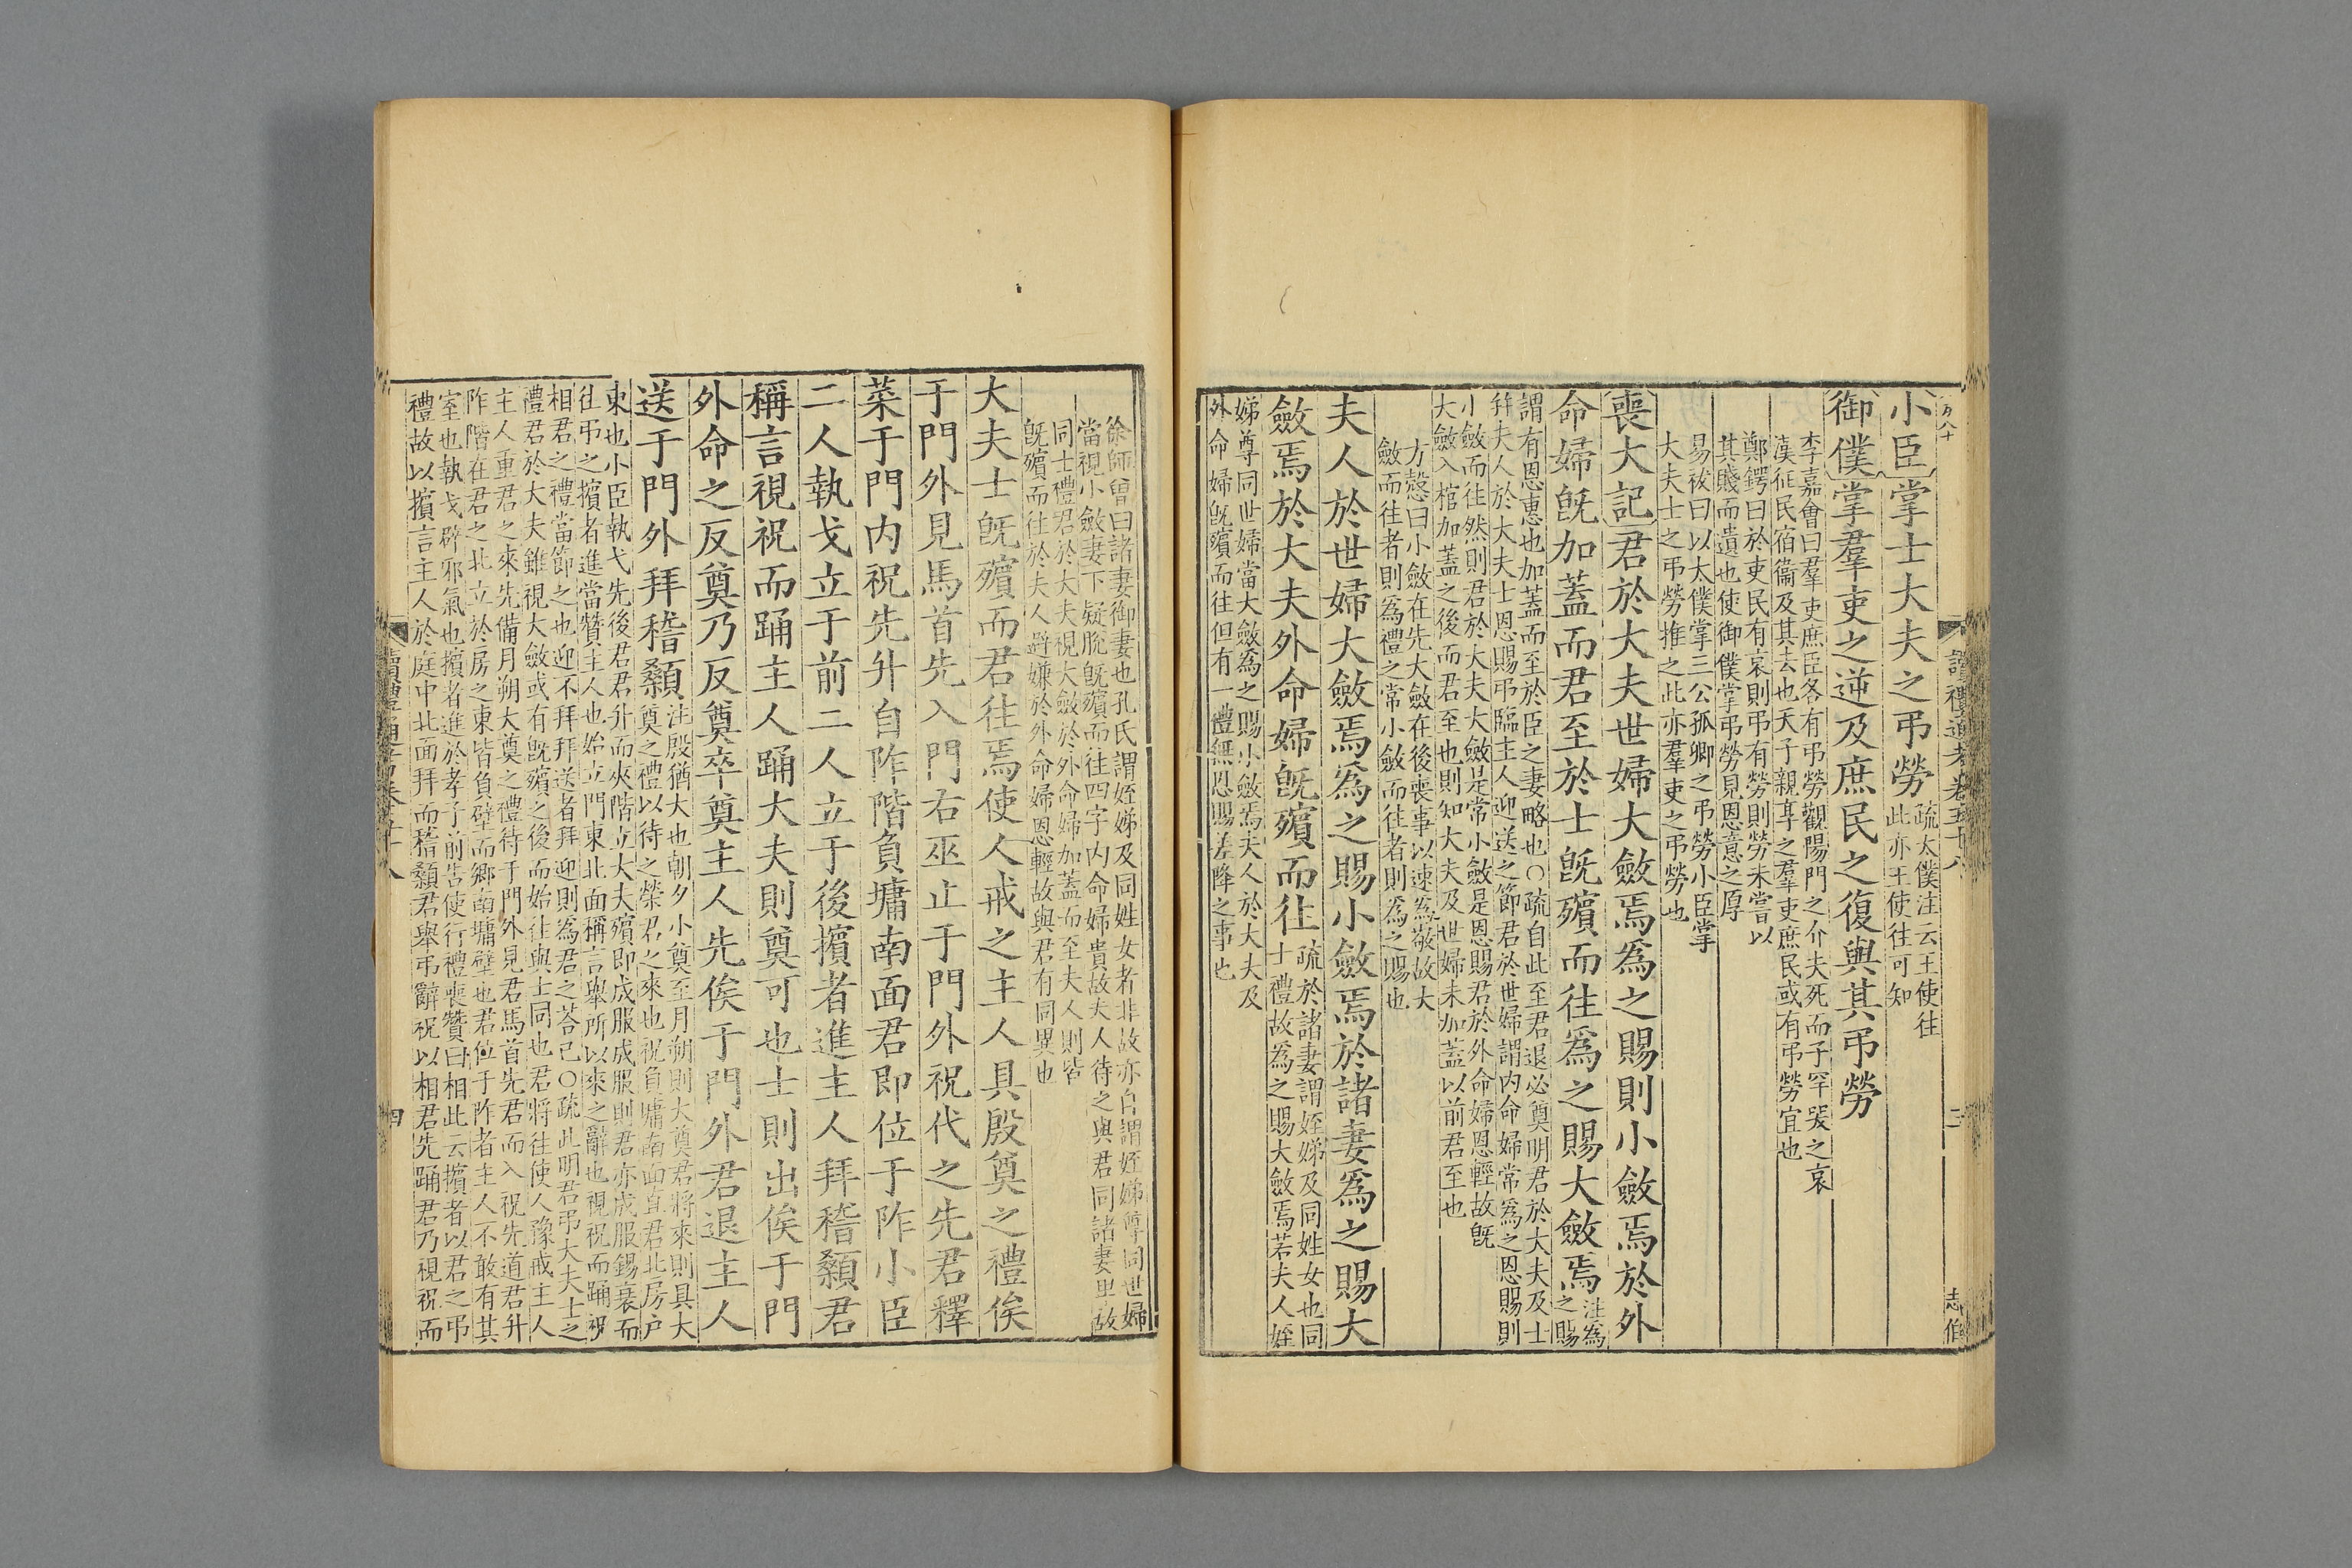 讀禮通考卷五十八
三
志伯
小臣掌士大夫之弔勞疏太僕注云王使往
此亦王使往可知
御僕掌羣吏之逆及庶民之復與其弔勞
李嘉會曰羣吏庶臣各有弔勞觀陽門之介夫死而子罕哭之哀
漢征民宿衞及其去也天子親享之羣吏庶民或有弔勞宜也
鄭鍔曰於吏民有哀則弔有勞則勞未嘗以
其賤而遺也使御僕掌弔勞見恩意之厚
易祓曰以太僕掌三公孤卿之弔勞小臣掌
大夫士之弔勞推之此亦羣吏之弔勞也
喪大記君於大夫世婦大斂焉爲之賜則小斂焉於外
命婦旣加蓋而君至於士旣殯而往爲之賜大斂焉注爲
之賜
謂有恩惠也加蓋而至於臣之妻略也○疏自此至君退必奠明君於大夫及士
幷夫人於大夫士恩賜弔臨主人迎送之節君於世婦謂内命婦常爲之恩賜則
小斂而往然則君於大夫大斂是常小斂是恩賜君於外命婦恩輕故旣
大斂入棺加蓋之後而君至也則知大夫及世婦未加蓋以前君至也
方慤曰小斂在先大斂在後喪事以速爲敬故大
斂而往者則爲禮之常小斂而往者則爲之賜也
夫人於世婦大斂焉爲之賜小斂焉於諸妻爲之賜大
斂焉於大夫外命婦旣殯而往疏於諸妻謂姪娣及同姓女也同
士禮故爲之賜大斂焉若夫人姪
娣尊同世婦當大斂爲之賜小斂焉夫人於大夫及
外命婦旣殯而往但有一禮無恩賜差降之事也
徐師曾曰諸妻御妻也孔氏謂姪娣及同姓女者非故亦自謂姪娣尊同世婦
當視小斂妻下疑脫旣殯而往四字内命婦貴故夫人待之與君同諸妻卑故
同士禮君於大夫視大斂於外命婦加蓋而至夫人則皆
旣殯而往於夫人避嫌於外命婦恩輕故與君有同異也
大夫士旣殯而君往焉使人戒之主人具殷奠之禮俟
于門外見馬首先入門右巫止于門外祝代之先君釋
菜于門内祝先升自阼階負墉南面君即位于阼小臣
二人執戈立于前二人立于後擯者進主人拜稽顙君
稱言視祝而踊主人踊大夫則奠可也士則出俟于門
外命之反奠乃反奠卒奠主人先俟于門外君退主人
送于門外拜稽顙注殷猶大也朝夕小奠至月朔則大奠君將來則具大
奠之禮以待之榮君之來也祝負墉南面直君北房戶
東也小臣執戈先後君君升而夾階立大夫殯即成服成服則君亦成服錫衰而
往弔之擯者進當贊主人也始立門東北面稱言舉所以來之辭也視祝而踊祝
相君之禮當節之也迎不拜拜送者拜迎則爲君之荅己○疏此明君弔大夫士之
禮君於大夫雖視大斂或有旣殯之後而始往與士同也君將往使人豫戒主人
主人重君之來先備月朔大奠之禮待于門外見君馬首先君而入祝先道君升
阼階在君之北立於房之東皆負壁而鄉南墉壁也君位于阼者主人不敢有其
室也執戈辟邪氣也擯者進於孝子前告使行禮喪贊曰相此云擯者以君之弔
禮故以擯言主人於庭中北面拜而稽顙君舉弔辭祝以相君先踊君乃視祝而
讀禮通考卷五十八
四